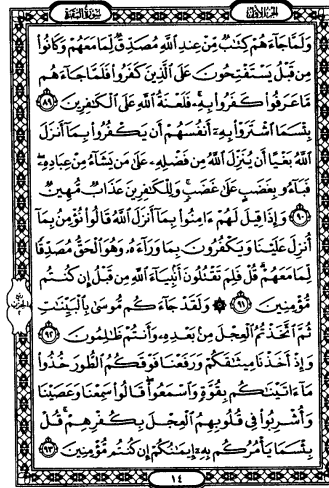 الجزء الأول
سورة البقرة
وَلَمَّا جَآءَهُمْ كِتَٰبٌ مِّنْ عِندِ ٱللَّهِ مُصَدِّقٌ لِّمَا مَعَهُمْ وَكَانُوا۟
مِن قَبْلُ يَسْتَفْتِحُونَ عَلَى ٱلَّذِينَ كَفَرُوا۟ فَلَمَّا جَآءَهُم
مَّا عَرَفُوا۟ كَفَرُوا۟ بِهِۦ ۚ فَلَعْنَةُ ٱللَّهِ عَلَى ٱلْكَٰفِرِينَ ٨٩
بِئْسَمَا ٱشْتَرَوْا۟ بِهِۦٓ أَنفُسَهُمْ أَن يَكْفُرُوا۟ بِمَآ أَنزَلَ
ٱللَّهُ بَغْيًا أَن يُنَزِّلَ ٱللَّهُ مِن فَضْلِهِۦ عَلَىٰ مَن يَشَآءُ مِنْ عِبَادِهِۦ ۖ
فَبَآءُو بِغَضَبٍ عَلَىٰ غَضَبٍ ۚ وَلِلْكَٰفِرِينَ عَذَابٌ مُّهِينٌ
٩٠ وَإِذَا قِيلَ لَهُمْ ءَامِنُوا۟ بِمَآ أَنزَلَ ٱللَّهُ قَالُوا۟ نُؤْمِنُ بِمَآ
أُنزِلَ عَلَيْنَا وَيَكْفُرُونَ بِمَا وَرَآءَهُۥ وَهُوَ ٱلْحَقُّ مُصَدِّقًا
لِّمَا مَعَهُمْ ۗ قُلْ فَلِمَ تَقْتُلُونَ أَنۢبِيَآءَ ٱللَّهِ مِن قَبْلُ إِن كُنتُم
مُّؤْمِنِينَ ٩١ ۞ وَلَقَدْ جَآءَكُم مُّوسَىٰ بِٱلْبَيِّنَٰتِ
ثُمَّ ٱتَّخَذْتُمُ ٱلْعِجْلَ مِنۢ بَعْدِهِۦ وَأَنتُمْ ظَٰلِمُونَ ٩٢
وَإِذْ أَخَذْنَا مِيثَٰقَكُمْ وَرَفَعْنَا فَوْقَكُمُ ٱلطُّورَ خُذُوا۟
مَآ ءَاتَيْنَٰكُم بِقُوَّةٍ وَٱسْمَعُوا۟ ۖ قَالُوا۟ سَمِعْنَا وَعَصَيْنَا
وَأُشْرِبُوا۟ فِى قُلُوبِهِمُ ٱلْعِجْلَ بِكُفْرِهِمْ ۚ قُلْ
بِئْسَمَا يَأْمُرُكُم بِهِۦٓ إِيمَٰنُكُمْ إِن كُنتُم مُّؤْمِنِينَ ٩٣
١٤